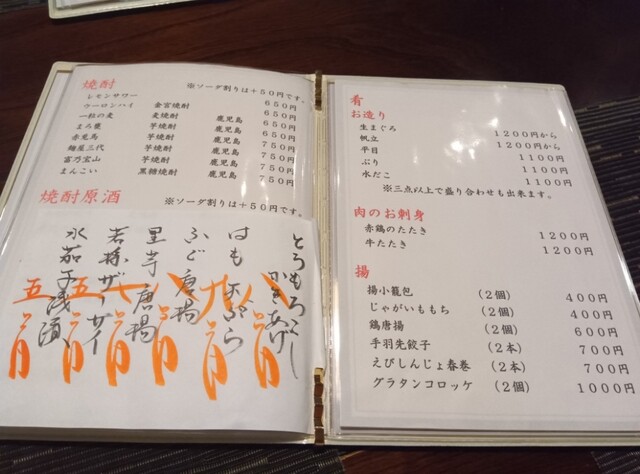 焼酎 ※ソーダ割りは＋５０円です。
レモンサワー ６５０円
ウーロンハイ 金宮焼酎 ６５０円
一粒の麦 麦焼酎 鹿児島 ６５０円
まろ蔵 芋焼酎 鹿児島
赤兎馬 芋焼酎 鹿児島 ７５０円
麹屋三代 芋焼酎 鹿児島 ７５０円
富乃宝山 芋焼酎 鹿児島 ７５０円
まんこい 黒糖焼酎 鹿児島 ７５０円
焼酎原酒 ※ソーダ割りは＋５０円です。
とうもろこし
かきあげ 八
はも天ぷら 九
ふぐ唐揚 八
里芋唐揚
若採ザーサイ 五
水茄子浅漬 五
肴
お造り
生まぐろ １２００円から
帆立 １２００円から
平目 １１００円
ぶり １１００円
水だこ １１００円
※三点以上で盛り合わせも出来ます。
肉のお刺身
赤鶏のたたき １２００円
牛たたき １２００円
揚
揚小籠包 （２個） ４００円
じゃがいももち （２個） ４００円
鶏唐揚 （２個） ６００円
手羽先餃子 （２本） ７００円
えびしんじょ春巻 （２本） ７００円
グラタンコロッケ （２個） １０００円